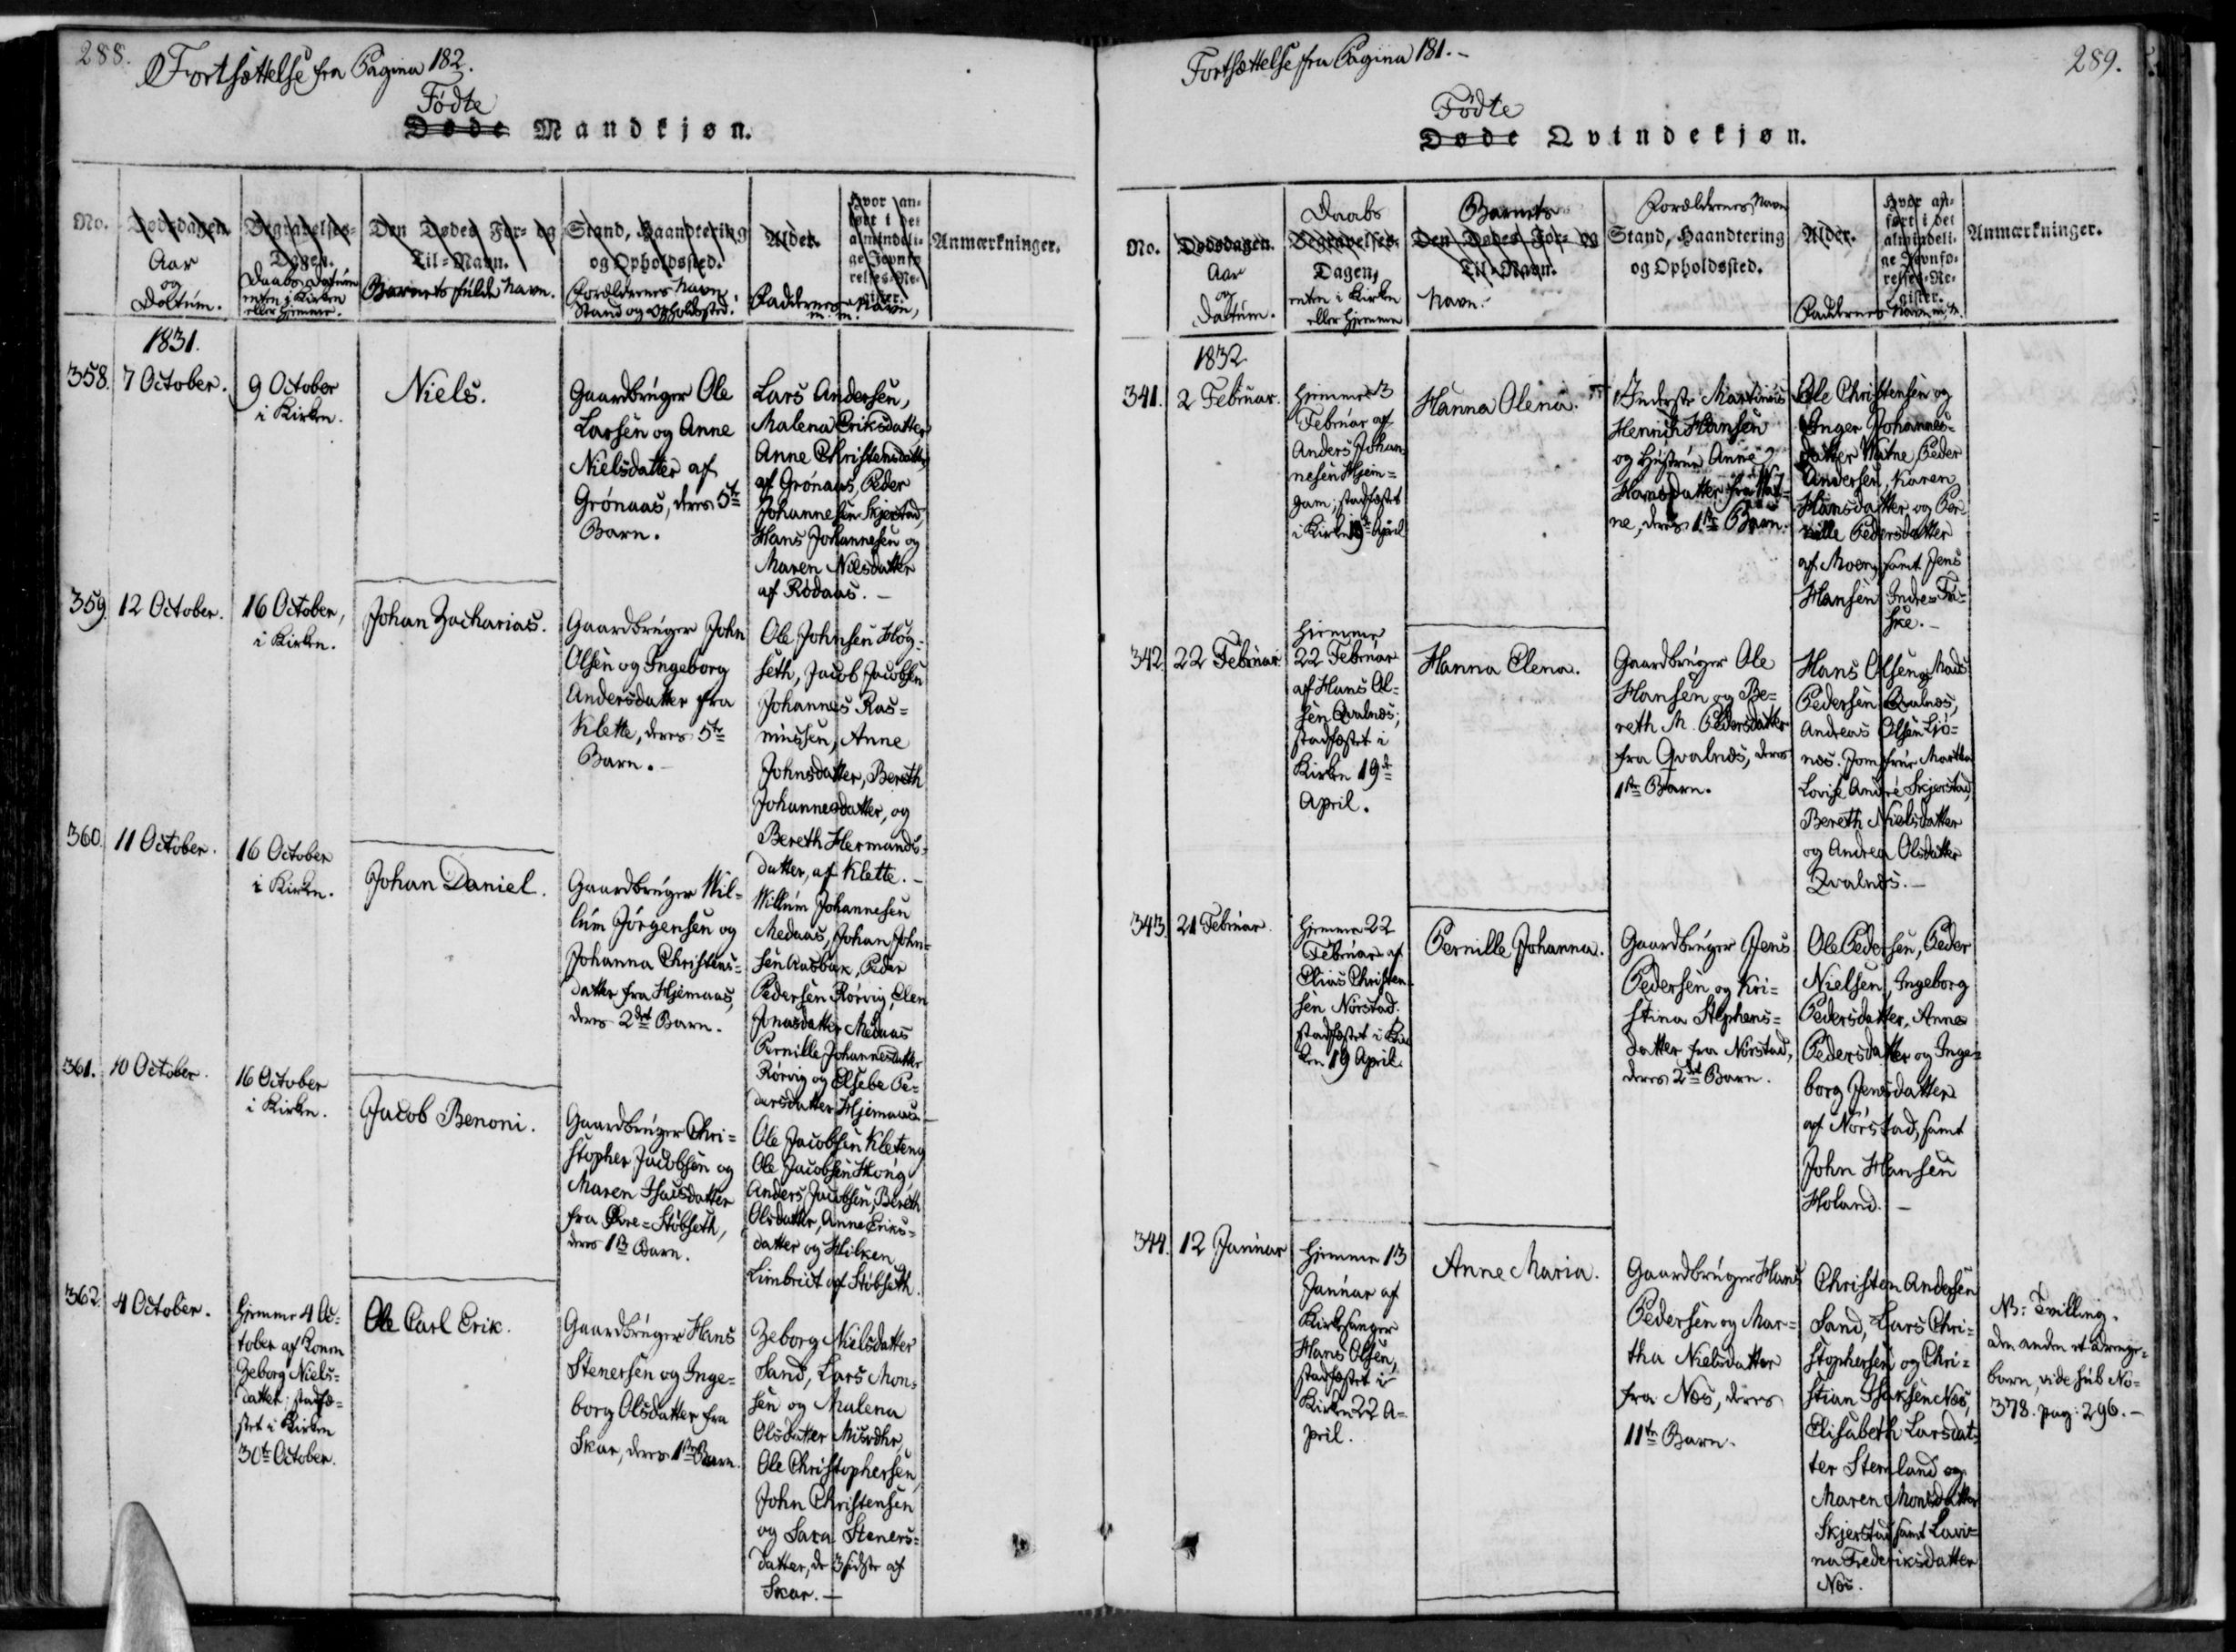 288.
Fortsættelse fra Pagina 182.
Fødte
Døde Mandkjøn.
No.
Dødsdagen.
Aar
og
Datum.
Begravelses-
Dagen.
Daabs Datum
enten i Kirken
eller hjemme.
Den Dødes For- og
Til-Navn.
Barnets fulde Navn.
Stand, Haandtering
og Opholdssted.
Forældrenes Navn,
Stand og Opholdssted.
Alder.
Hvor an-
ført i det
almindeli-
ge Jevnfø-
relses-Re-
gister.
Faddernes Navn,
m. m.
Anmærkninger.
1831.
358.
7 October.
9 October
i Kirken.
Niels.
Gaardbruger Ole
Larsen og Anne
Nielsdatter af
Grønaas, deres 5te
Barn.
Lars Andersen,
Malena Eriksdatter
Anne Christensdatter
af Grønaas, Peder
Johannesen Skjerstad,
Hans Johannesen og
Maren Nilsdatter
af Rødaas. –
359.
12 October.
16 October,
i Kirken.
Johan Zacharias.
Gaardbruger John
Olsen og Ingeborg
Andersdatter fra
Klette, deres 5te
Barn. –
Ole Johnsen Høg-
seth, Jacob Jacobsen
Johannes Ras-
mussen, Anne
Johnsdatter, Bereth
Johannesdatter, og
Bereth Hermands-
datter, af Klette. –
360.
11 October.
16 October
i Kirken.
Johan Daniel.
Gaardbruger Wil-
lum Jørgensen og
Johanna Christens-
datter fra Hjemaas,
deres 2det Barn.
Willum Johannesen
Medaas, Johan John-
sen Aasbak, Peder
Pedersen Rørvig, Elen
Jonasdatter Medaas
Pernille Johannesdatter
Rørvig og Elsebe Pe-
dersdatter Hjemaas. –
361.
10 October.
16 October
i Kirken.
Jacob Benoni.
Gaardbruger Chri-
stopher Jacobsen og
Maren Isaksdatter
fra Øvre-Støbseth,
deres 1ste Barn.
Ole Jacobsen Kleteng
Ole Jacobsen Høng,
Anders Jacobsen, Bereth
Olsdatter, Anne Eriks-
datter og Hilken
Limbrict af Støbseth.
362.
4 October.
Hjemme 4 Oc-
tober af Konen
Zeborg Niels-
datter; stadfæ-
stet i Kirken
30te October.
Ole Carl Erik.
Gaardbruger Hans
Stenersen og Inge-
borg Olsdatter fra
Skar, deres 1ste Barn.
Zeborg Nielsdatter
Sand, Lars Mon-
sen og Malena
Olsdatter Misvær,
Ole Christophersen,
John Christensen
og Sara Steners-
datter, de 3 sidste af
Skar. –
Fortsættelse fra Pagina 181. –
289.
Fødte
Døde Qvindekjøn.
No.
Dødsdagen.
Aar
og
Datum.
Daabs
Begravelses-
Dagen,
enten i Kirken
eller hjemme
Barnets
Den Dødes For- og
Til-Navn.
Navn.
Forældrenes Navn
Stand, Haandtering
og Opholdssted.
Alder.
Hvor an-
ført i det
almindeli-
ge Jevnfø-
relses-Re-
gister.
Faddernes Navn m. m.
Anmærkninger.
1832.
341.
2 Februar.
Hjemme 3
Februar af
Anders Johan-
nesen Hjem-
gam; stadfæstet
i Kirken 19de April
Hanna Olena.
Inderste Martinus
Henrich Hansen
og Hustrue Anne
Hansdatter fra Wat-
ne, deres 1ste Barn.
Ole Christensen og
Inger Johannes-
datter Watne, Peder
Andersen, Karen
Hansdatter og Per-
nille Pedersdatter
af Moen, samt Jens
Hansen Indre-Fu-
ske. –
342.
22 Februar.
Hjemme
22 Februar
af Hans Ol-
sen Qvalnæs;
stadfæstet i
Kirken 19de
April.
Hanna Elena.
Gaardbruger Ole
Hansen og Be-
reth M. Pedersdatter
fra Qvalnæs, deres
1ste Barn.
Hans Olsen, Mads
Pedersen Qvalnæs,
Andreas Olsen Ljø-
næs. Jomfrue Martha
Lovise André Skjerstad,
Bereth Nielsdatter
og Andrea Olsdatter
Qvalnæs. –
343.
21 Februar.
Hjemme 22
Februar af
Elias Christen-
sen Nørstad,
stadfæstet i Kir-
ken 19 April.
Pernille Johanna.
Gaardbruger Jens
Pedersen og Kri-
stina Stephens-
datter fra Nørstad,
deres 2det Barn.
Ole Pedersen, Peder
Nielsen, Ingeborg
Pedersdatter, Anne
Pedersdatter og Inge-
borg Jensdatter
af Nørstad, samt
John Hansen
Holand. –
344.
12 Januar
Hjemme 13
Januar af
Kirkesanger
Hans Olsen,
stadfæstet i
Kirken 22 A-
pril.
Anne Maria.
Gaardbruger Hans
Pedersen og Mar-
tha Nielsdatter
fra Næs, deres
11te Barn.
Christen Andersen
Sand, Lars Chri-
stophersen og Chri-
stian Isaksen Næs,
Elisabeth Larsdat-
ter Stemland og
Maren Monsdatter
Skjerstad samt Lavi-
na Frederiksdatter
Næs.
NB: Tvilling,
den anden et Drenge-
barn, vide sub No-
378. pag: 296. –